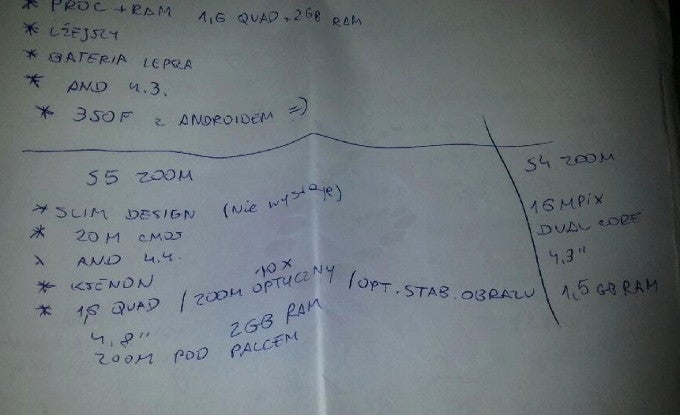 * PROC + RAM 1,6 QUAD + 2GB RAM
* LŻEJSZY
* BATERIA LEPRA
* AND 4.3.
* 350F z ANDROIDEM =)
S5 ZOOM
* SLIM DESIGN (Nie wystaje)
* 20M CMOS
AND 4.4.
* KSENON
* 1,6 QUAD / ZOOM OPTYCZNY 10X / OPT. STAB. OBRAZU
4,8" 2GB RAM
ZOOM POD PALCEM
S4 ZOOM
16 MPIX
DUAL CORE
4,3"
1,5 GB RAM